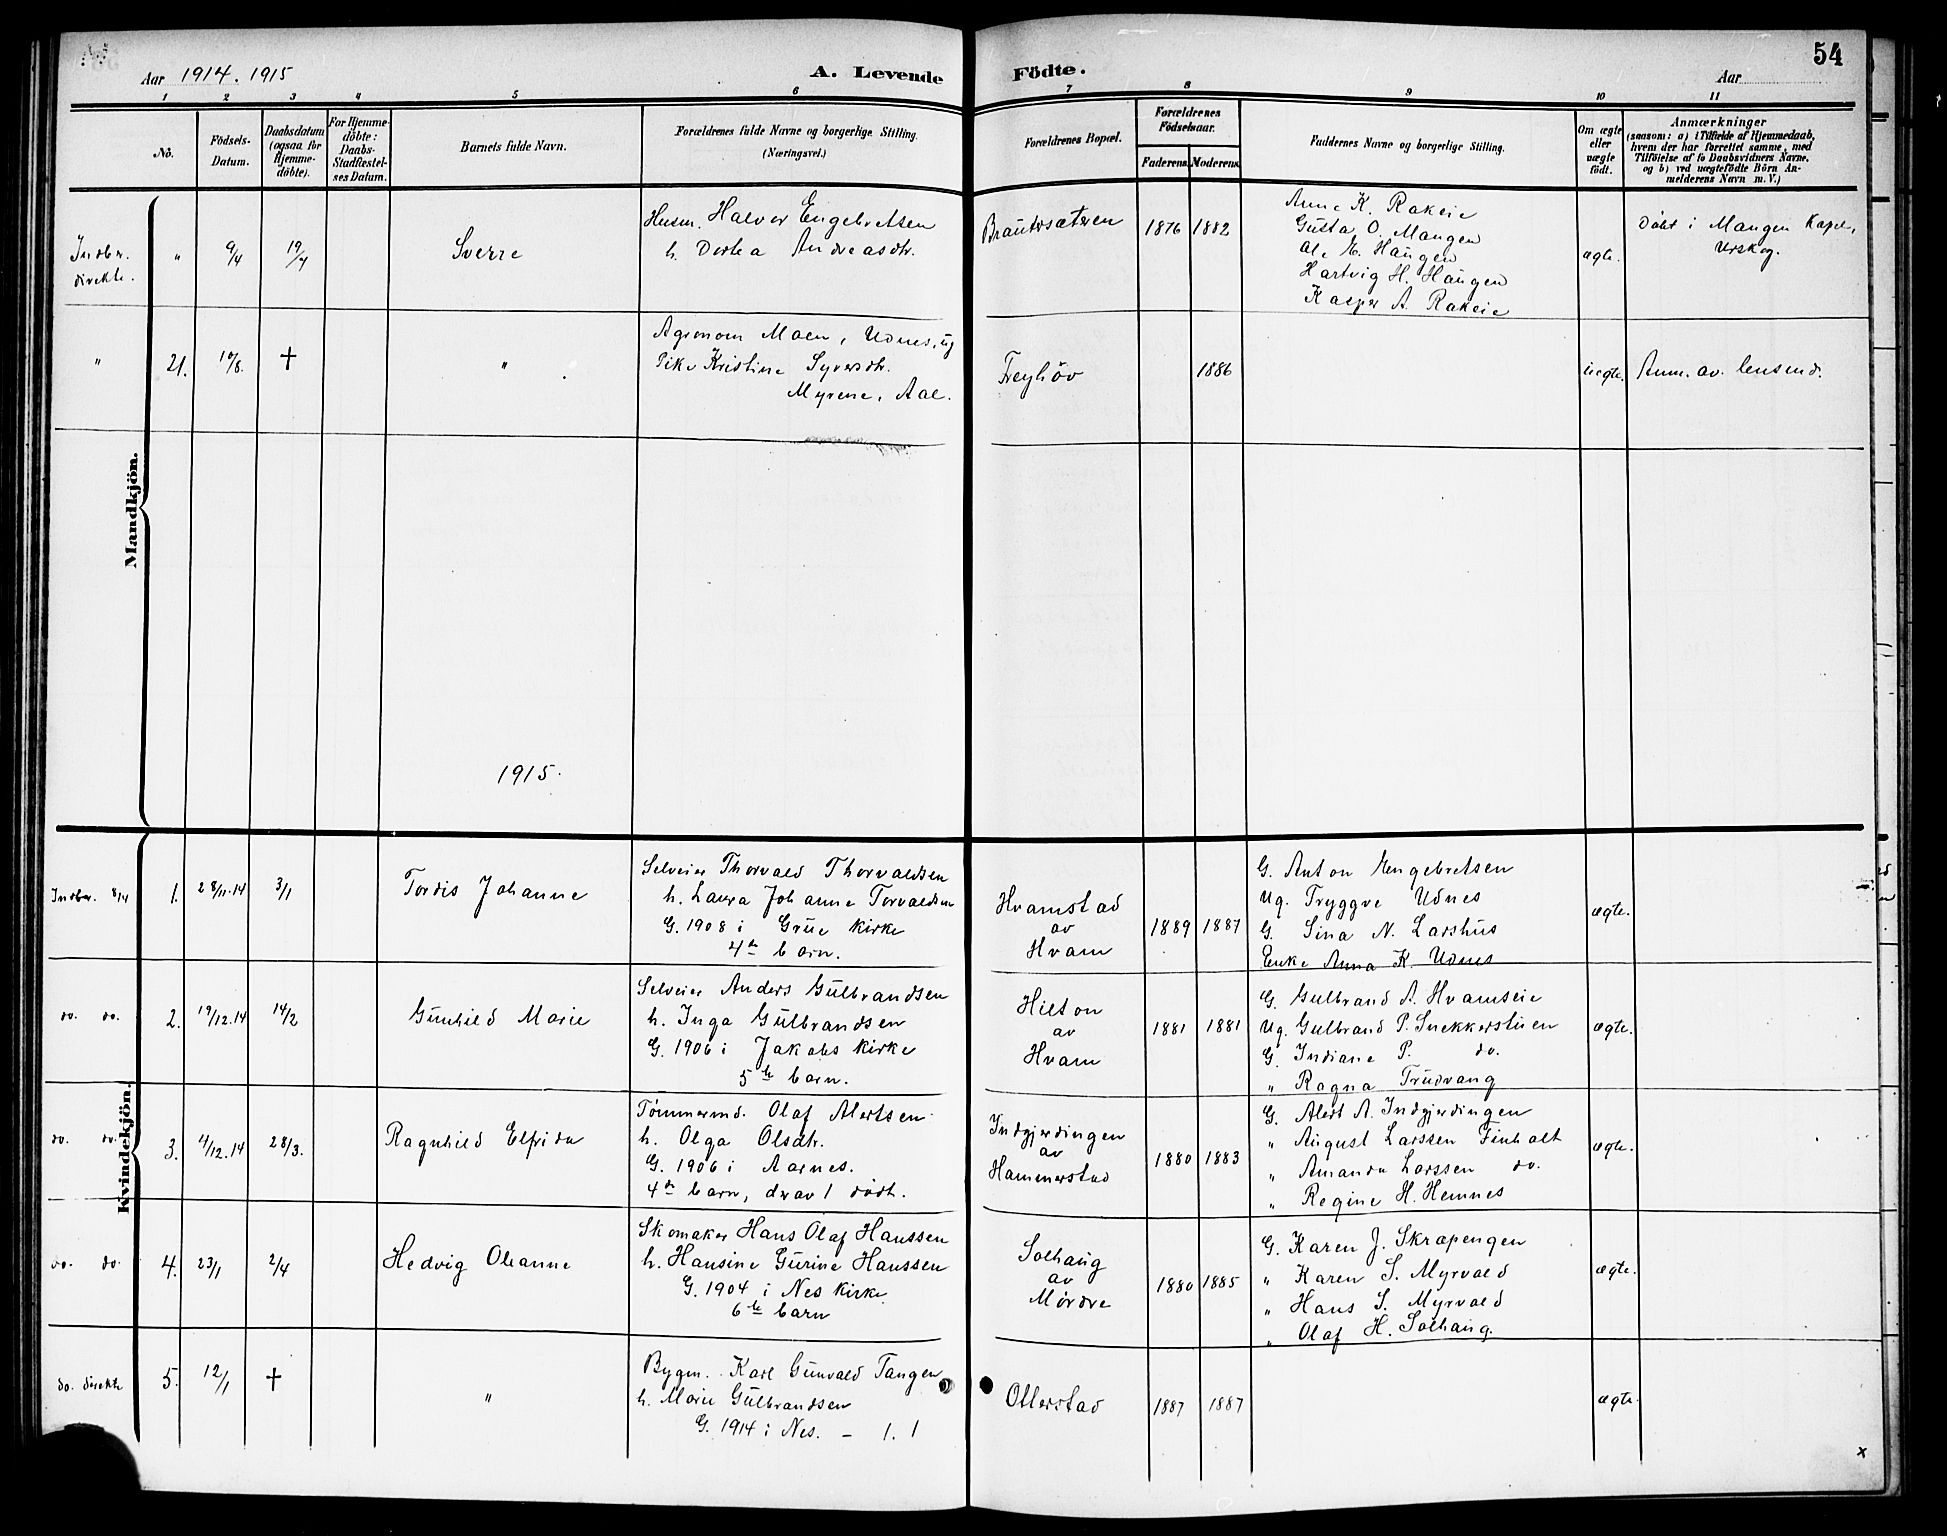 54
Aar 1914. 1915
A. Levende Födte.
Aar
1 2 3 4 5 6 7 8 9 10 11
No.
Födsels-Datum.
Daabsdatum (ogsaa for Hjemme-döbte).
For Hjemme-döbte: Daabs-Stadfæstel-ses Datum.
Barnets fulde Navn.
Forældrenes fulde Navne og borgerlige Stilling.
(Næringsvei.)
Forældrenes Bopæl.
Forældrenes Födselsaar.
Faderens. Moderens.
Faddernes Navne og borgerlige Stilling.
Om ægte eller uægte födt.
Anmærkninger
(saasom: a) i Tilfælde af Hjemmedaab,
hvem der har forrettet samme, med
Tilföielse af to Daabsvidners Navne.
og b) ved uægtefödte Börn An-
melderens Navn m. V.)
Mandkjön.
Indbr. direkte.
" 9/4 19/4 Sverre
Husm. Halvor Engebretsen
h. Dortea Andreasdtr.
Brautersæteren 1876 1882
Anne K. Rakeie
Gusta O. Mangen
Ole E. Haugen
Hartvig H. Haugen
Kasper A. Rakeie
ægte.
Döbt i Mangen Kapel,
Urskog.
" 21. 10/8. † "
Agronom Moen, Udnes, ug
Pike Kristine Syversdtr.
Myrene, Aal.
Freyhöv 1886
uegte. Anm. av lensmd.
1915.
Kvindekjön.
Indbr. 8/4 1. 28/11.14 3/1 Tordis Johanne
Selveier Thorvald Thorvaldsen
h. Laura Johanne Torvaldsen
G. 1908 i Grue kirke
4de barn.
Hvamstad
av
Hvam
1889 1887
G. Anton Engebretsen
Ug. Tryggve Udnes
G. Sina N. Larshus
Enke Anna K. Udnes
ægte.
do. do. 2. 19/12.14 14/2 Gunhild Marie
Selveier Anders Gulbrandsen
h. Inga Gulbrandsen
G. 1906 i Jakobs kirke
5te barn.
Hilton
av
Hvam
1881 1881
G. Gulbrand A. Hvamseie
Ug. Gulbrand P. Snekkerstuen
G. Indiane P. do.
" Ragna Trudvang
ægte.
do. do. 3. 4/12.14 28/3. Ragnhild Elfrida
Tömmermd. Olaf Alertsen
h. Olga Olsdtr.
G. 1906 i Aarnes.
4de barn, derav 1 dödt.
Indgjerdingen
av
Hammerstad
1880 1883
G. Alert A. Indgjerdingen
" August Larssen Finholt
" Amanda Larssen do.
" Regine H. Hemnes
ægte.
do. do. 4. 23/1 2/4 Hedvig Oleanne
Skomaker Hans Olaf Hanssen
h. Hansine Gurine Hanssen
G. 1904 i Nes kirke
6te barn
Solhaug
av
Mørdre
1880 1885
G. Karen J. Skrapengen
" Karen S. Myrvold
" Hans S. Myrvold
" Olaf H. Solhaug.
ægte.
do. direkte 5. 12/1 † "
Bygm. Karl Gunvald Tangen
h. Marie Gulbrandsen
G. 1914 i Nes. – 1. 1
Ollerstad 1887 1887
ægte.
x